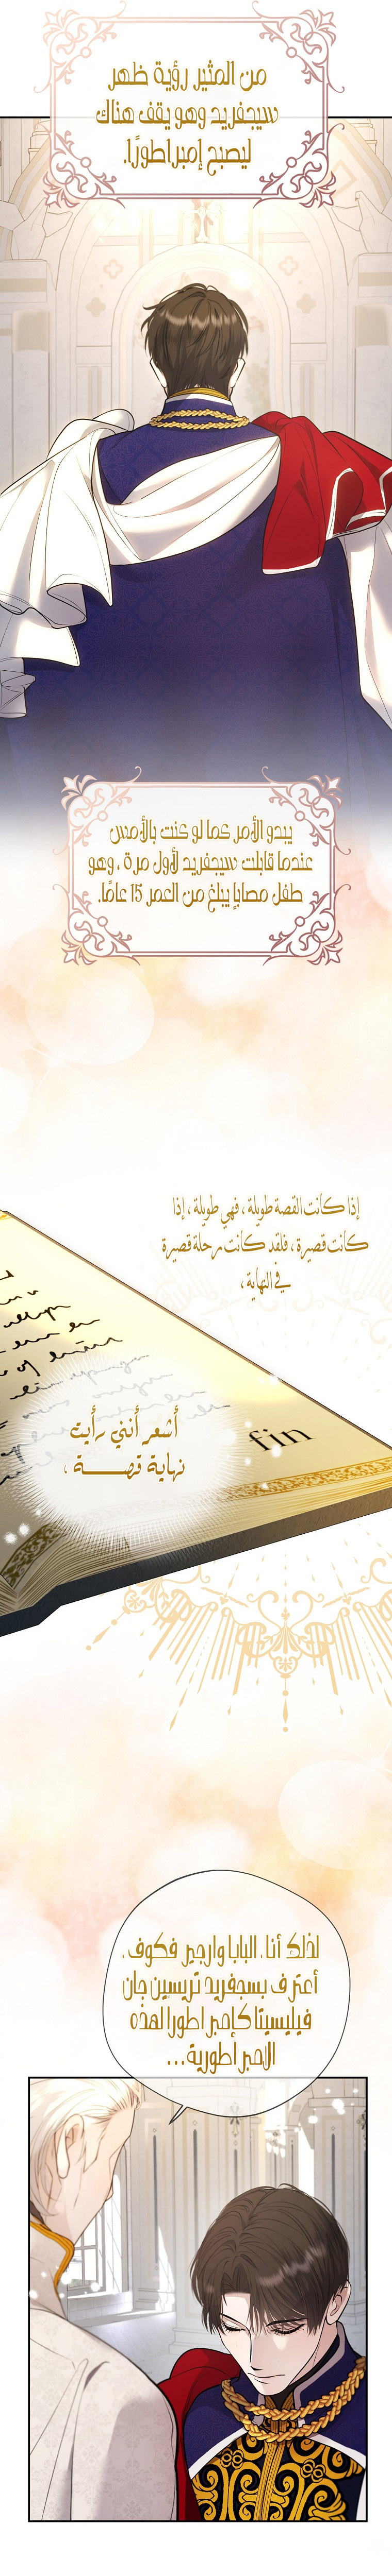 من المثير رؤية ظهر
سيجفريد وهو يقف هناك
ليصبح إمبراطورًا.
يبدو الأمر كما لو كنت بالأمس
عندما قابلت سيجفريد لأول مرة ، وهو
طفل مصابا يبلغ من العمر 15 عامًا.
إذا كانت القصة طويلة ، فهي طويلة ، إذا
كانت قصيرة ، فلقد كانت رحلة قصيرة
في النهاية ،
أشعر أنني رأيت
نهاية قصة ،
fin
لذلك أنا ، البابا وارجير فكوف ،
أعترف بسجفريد تريسين جان
فيليسيتا كإمبراطورا لهذه
الامبراطورية...